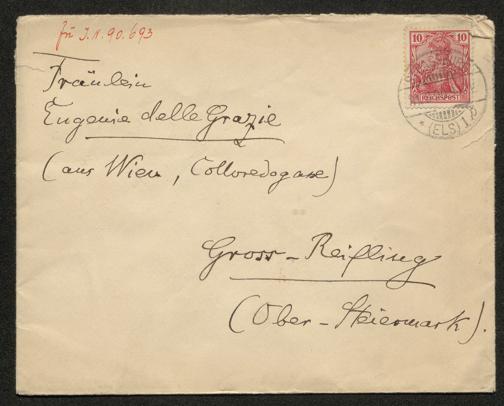 zu I.N.90.693
10 10
REICHSPOST
(ELS) 1
Fräulein
Eugenie delle Grazie
(aus Wien, Colloredogasse)
Gross-Reifling
(Ober-Steiermark).